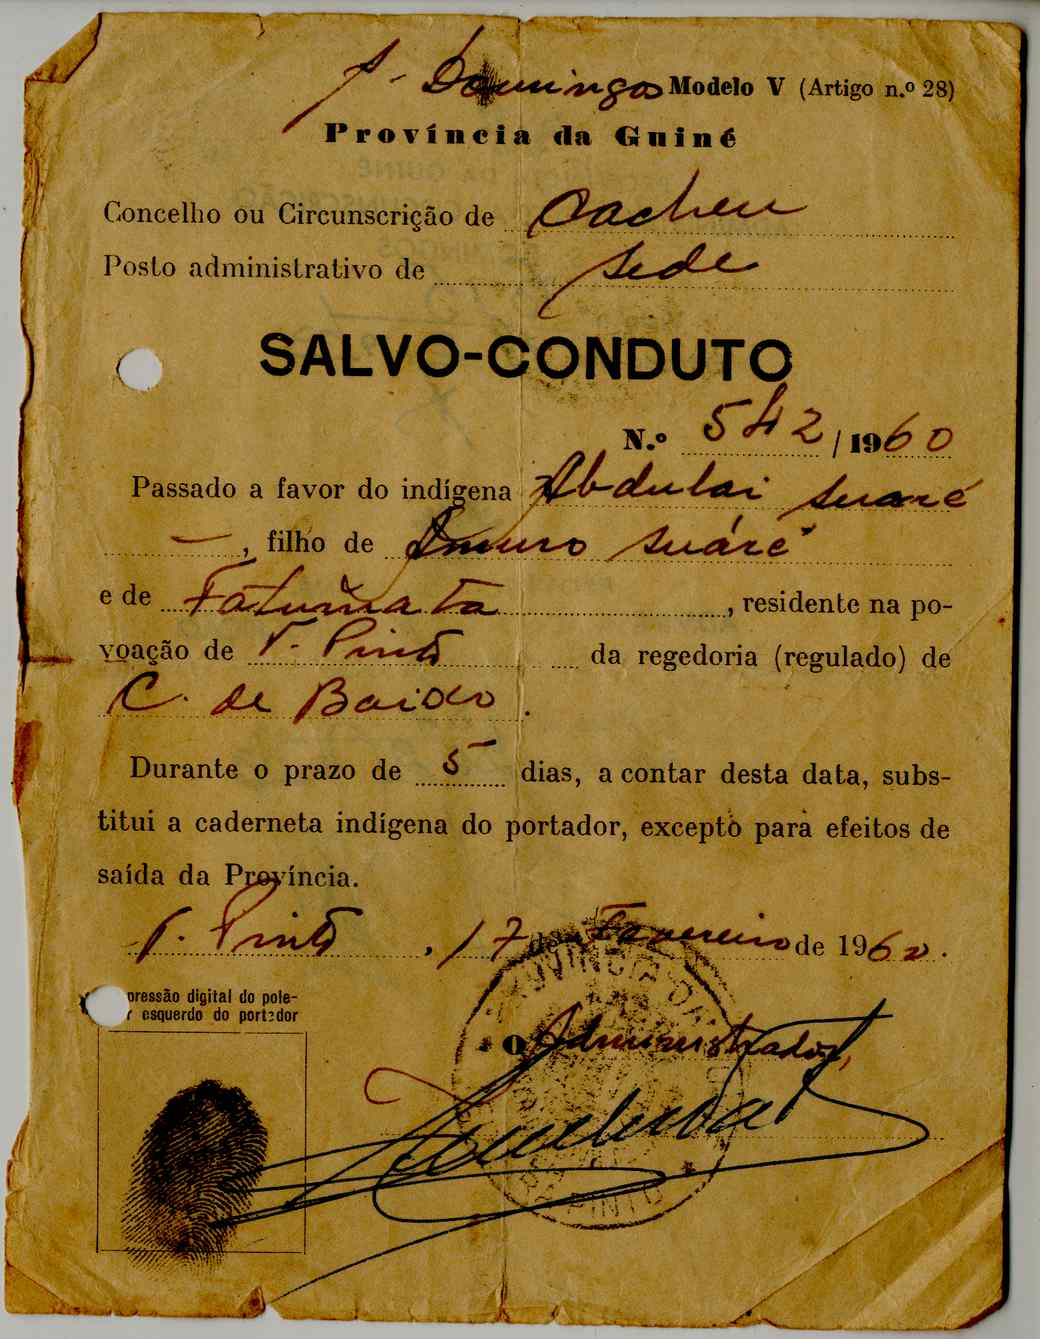 S. Domingos Modelo V (Artigo n.º 28)
Província da Guiné
Concelho ou Circunscrição de Cacheu
Posto administrativo de Sede
SALVO-CONDUTO
N.º 542 / 1960
Passado a favor do indígena Abdulai Suaré
—, filho de Suáré
e de Fatumata, residente na po-
voação de T. Pinto da regedoria (regulado) de
C. de Baixo.
Durante o prazo de 5 dias, a contar desta data, subs-
titui a caderneta indígena do portador, excepto para efeitos de
saída da Província.
T. Pinto, 17 de Fevereiro de 1960.
pressão digital do pole-
r esquerdo do portador
PROVINCIA DA
O Administrador,
PINTO